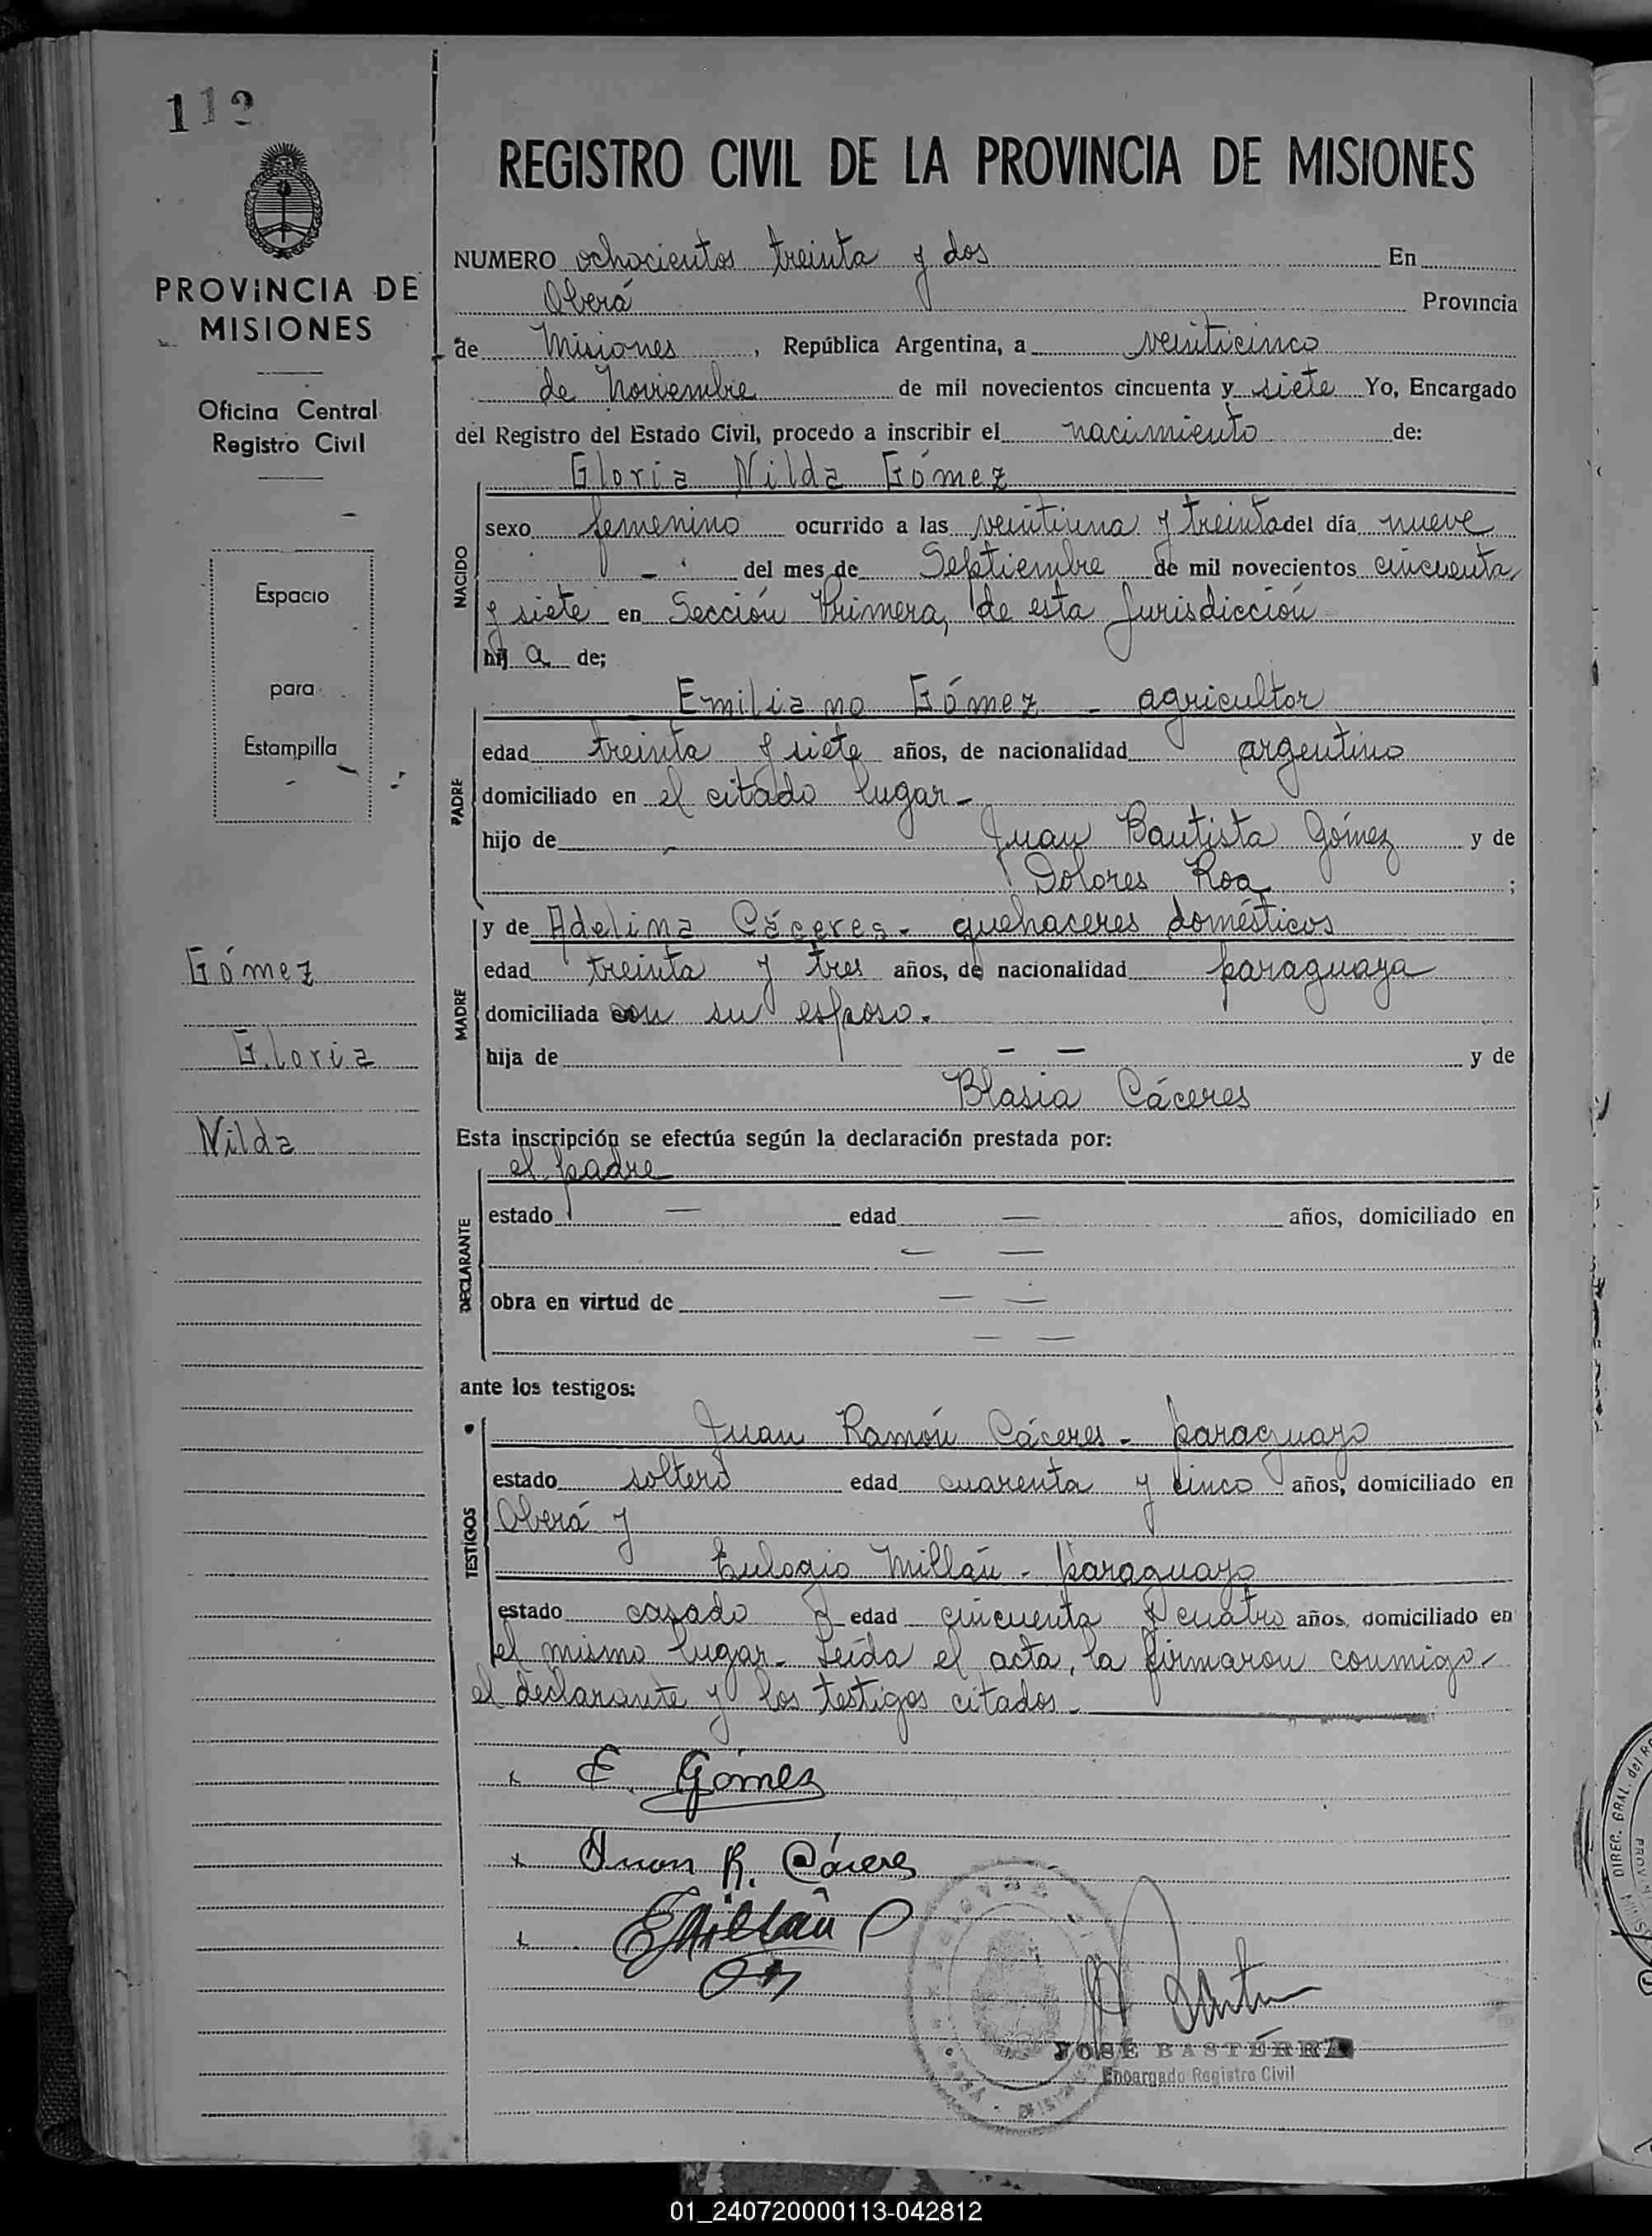 112
REGISTRO CIVIL DE LA PROVINCIA DE MISIONES
PROVINCIA DE
MISIONES
Oficina Central
Registro Civil
Espacio
para
Estampilla
Gómez
Gloria
Nilda
NUMERO ochocientos treinta y dos En
Oberá Provincia
de Misiones, República Argentina, a veinticinco
de Noviembre de mil novecientos cincuenta y siete Yo, Encargado
del Registro del Estado Civil, procedo a inscribir el nacimiento de:
Gloria Nilda Gómez
NACIDO
sexo femenino ocurrido a las veintiuna y treinta del día nueve
- del mes de Septiembre de mil novecientos cincuenta
y siete en Sección Primera, de esta Jurisdicción
hij a de;
Emiliano Gómez - agricultor
PADRE
edad treinta y siete años, de nacionalidad argentino
domiciliado en el citado lugar -
hijo de Juan Bautista Gómez y de
Dolores Roa ;
y de Adelina Cáceres - quehaceres domésticos
MADRE
edad treinta y tres años, de nacionalidad paraguaya
domiciliada con su esposo.
hija de - - y de
Blasia Cáceres
Esta inscripción se efectúa según la declaración prestada por:
el padre
DECLARANTE
estado - edad - años, domiciliado en
- -
obra en virtud de - -
- -
ante los testigos:
Juan Ramón Cáceres - paraguayo
TESTIGOS
estado soltero edad cuarenta y cinco años, domiciliado en
Oberá y
Eulogio Millán - paraguayo
estado casado y edad cincuenta y cuatro años, domiciliado en
el mismo lugar - Leída el acta, la firmaron conmigo -
el declarante y los testigos citados -
E. Gómez
Juan R. Cáceres
E Millán
JOSÉ BASTERRA
Encargado Registro Civil
DIREC. GRAL. del
01_240720000113-042812